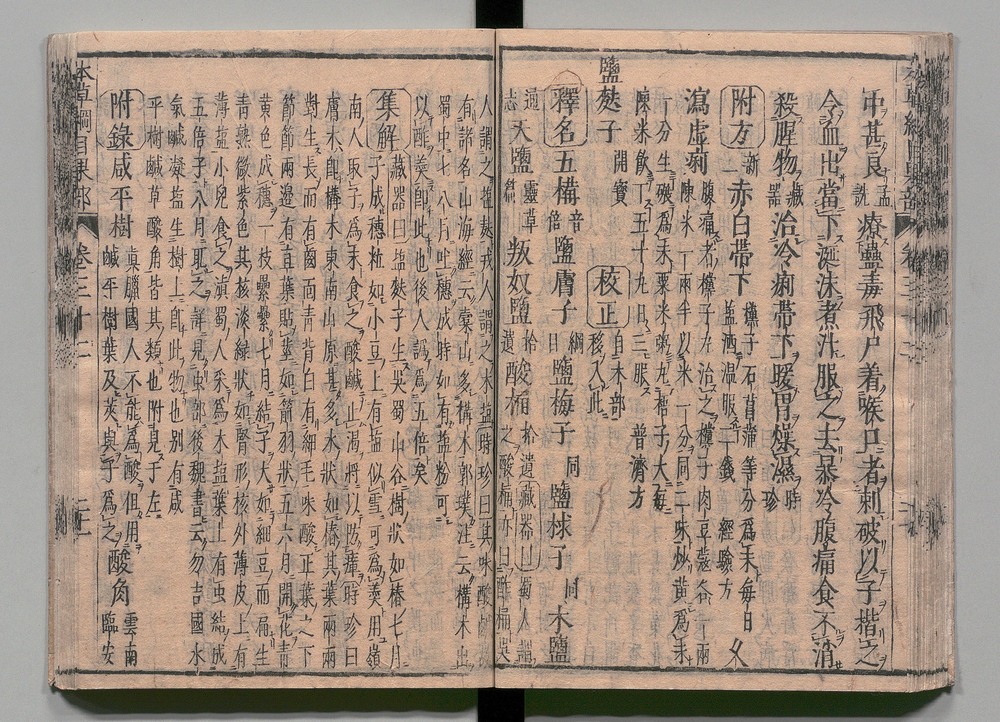 中甚良孟詵療蠱毒飛尸着喉口者刺破以子揩之
令血出當下涎沫煮汁服之去暴冷腹痛食不消
殺腥物藏器治冷痢帶下暖胃燥濕時珍
附方新二赤白帶下㯳子石菖蒲等分爲末毎日鹽酒温服二錢經驗方
瀉虚痢腹痛者㯳子丸治之㯳子肉豆蔻各一兩陳米一兩半以米一分同二味炒黄爲末
一分生碾爲末粟米粥丸梧子大毎
陳米飲下五十丸日三服普濟方
鹽麩子開寳校正自木部移入此
釋名五㯡音倍鹽膚子綱目鹽梅子同鹽梂子同木鹽
通志天鹽靈草篇叛奴鹽拾遺酸桶拾遺藏器曰蜀人謂之酸桶亦曰酢桶吴
人謂之鹽麩戎人謂之木鹽時珍曰其味酸
有諸名山海經云橐山多㯡木郭璞注云㯡木出
蜀中七八月吐穗成時如有鹽粉可
以酢羹即此也後人譌爲五倍矣
集解藏器曰鹽麩子生吴蜀山谷樹狀如椿七月
子成穗粒如小豆上有鹽似雪可爲羹用嶺
南人取子爲末食之酸鹹止渇將以防瘴時珍曰
膚木即㯡木東南山原甚多木狀如椿其葉兩兩
對生長而有齒面青背白有細毛味酸正葉之下
節節兩邊有直葉貼莖如箭羽狀五六月開花青
黄色成穗一枝纍纍七月結子大如細豆而扁生
青熟微紫色其核淡緑狀如腎形核外薄皮上有
薄鹽小兒食之滇蜀人采爲木鹽葉上有虫結成
五倍子八月取之詳見虫部後魏書云勿吉國水
氣鹹凝鹽生樹上即此物也别有咸
平樹鹹草酸角皆其類也附見于左
附錄咸平樹真臘國人不能爲酸但用鹹平樹葉及莢與子爲之酸角雲南臨安